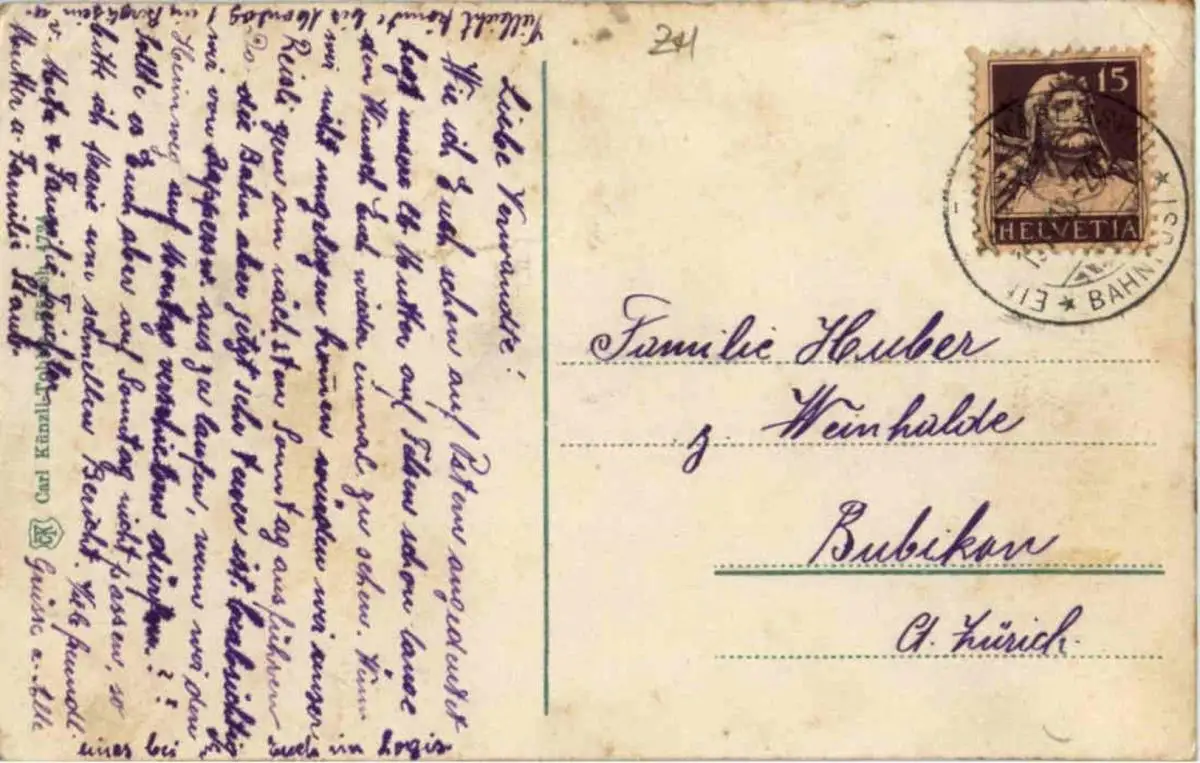 Liebe Verwandte!
Wie ich Euch schon auf Ostern angedeutet
hegt unsere lb Mutter auf Felsen schon lange
den Wunsch Euch wieder einmal zu sehen. Wenn
wir nicht ungelegen kommen würden wir unser
Reisli gern am nächsten Sonntag ausführen
Da die Bahn aber jetzt sehr teuer ist beabsichtig
wir von Rappersw. aus zu laufen, wenn wir den
Heimweg auf Montag verschieben dürften. ? ?
Sollte es Euch aber auf Sonntag nicht passen, so
bitte ich Marie um schnellen Bericht. Viele freundl
Grüsse a. Alle
v. Meta & Familie
Mutter u. Familie Staub.
Vielleicht könnte bis Montag 1
eines bei Euch im Logis
Carl Künzli-Tobler, Zürich
CK
Z4
15
HELVETIA
BAHN
Familie Huber
z. Weinhalde
Bubikon
Ct. Zürich.